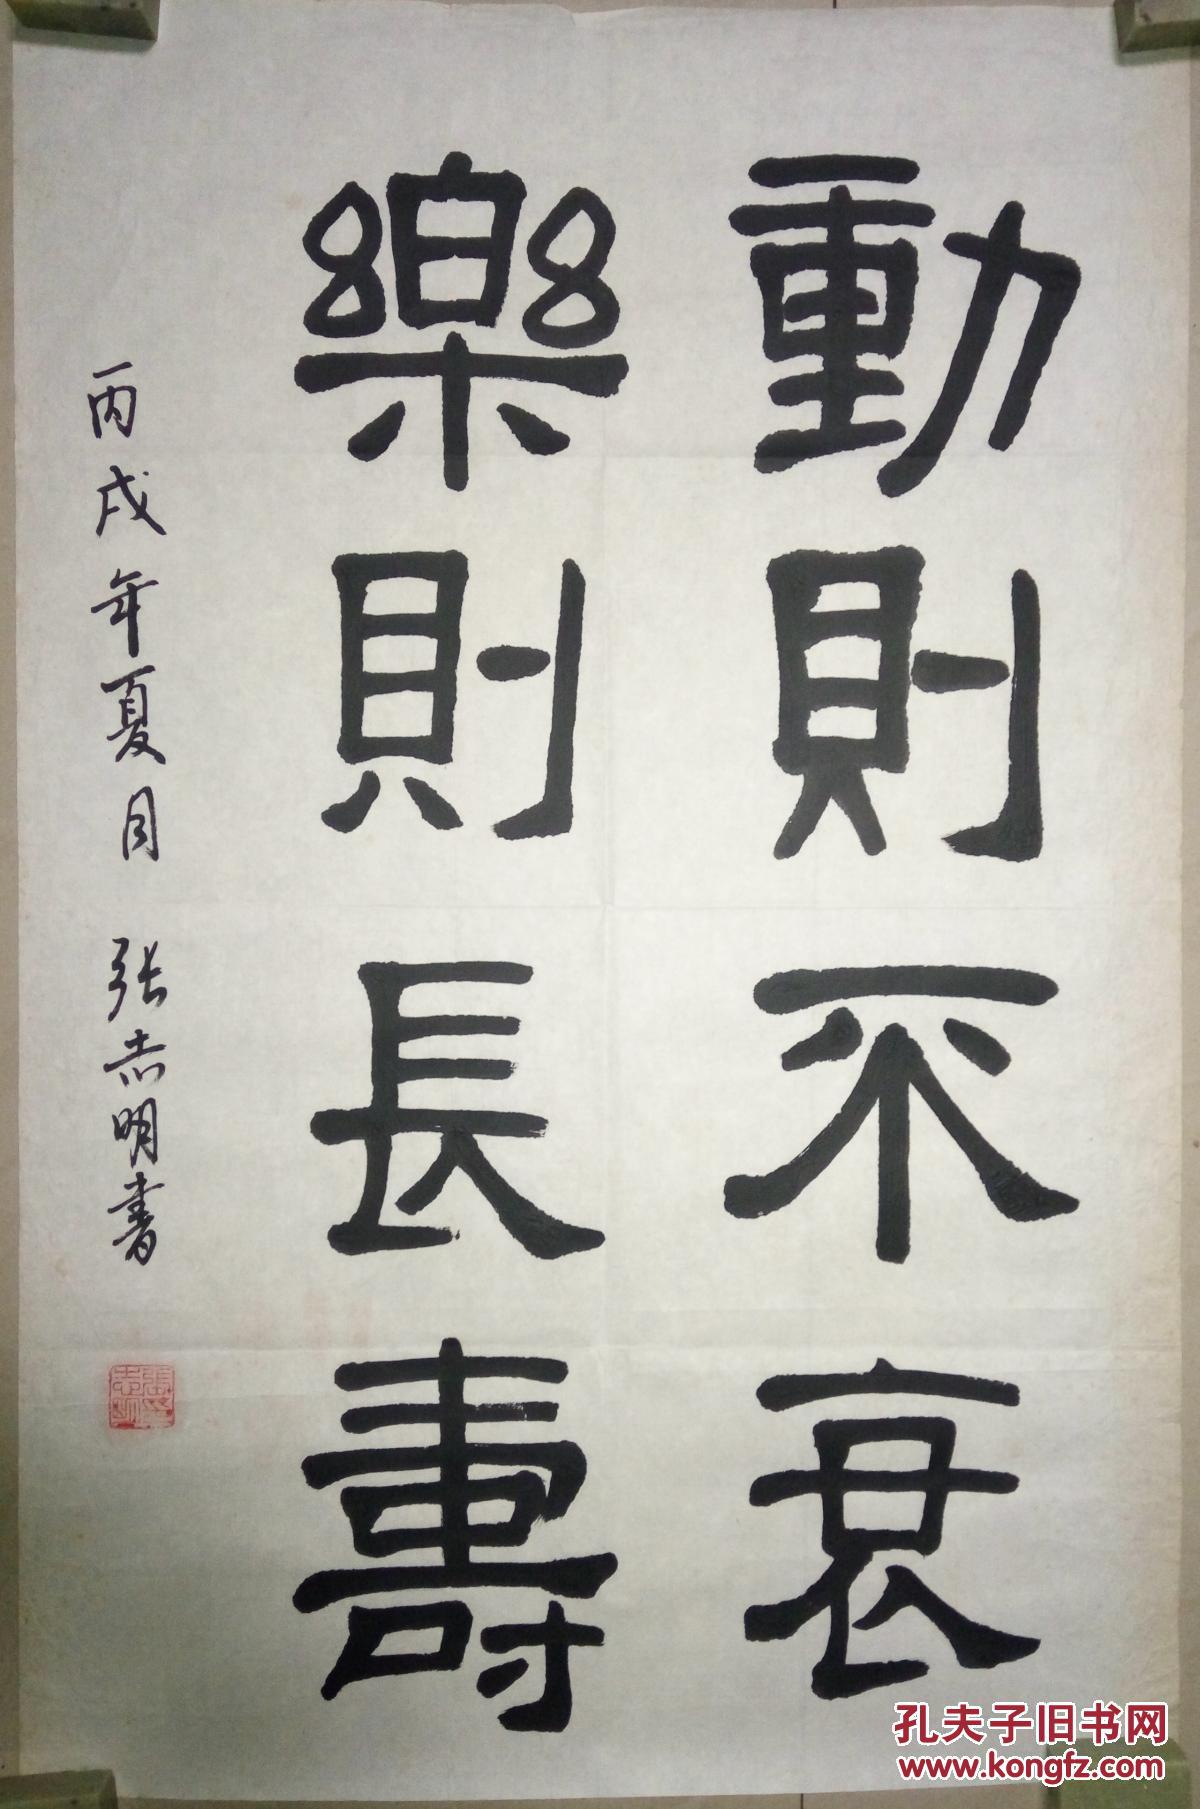 動則不衰
樂則長壽
丙戌年夏月 张志明书
張志明
孔夫子旧书网
www.kongfz.com